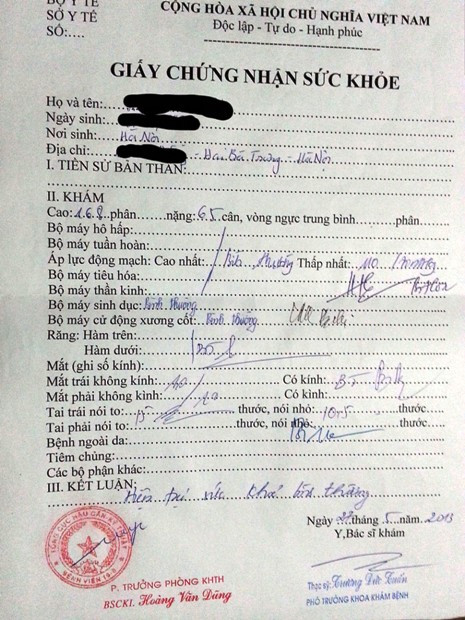 BỘ Y TẾ
SỞ Y TẾ
SỐ:....
CỘNG HÒA XÃ HỘI CHỦ NGHĨA VIỆT NAM
Độc lập - Tự do - Hạnh phúc
GIẤY CHỨNG NHẬN SỨC KHỎE
Họ và tên:
Ngày sinh:
Nơi sinh: Hà Nội
Địa chỉ: Hai Bà Trưng - Hà Nội
I. TIỀN SỬ BẢN THÂN:
II. KHÁM
Cao: 1.6.8 phân nặng: 65 cân, vòng ngực trung bình phân
Bộ máy hô hấp:
Bộ máy tuần hoàn:
Áp lực động mạch: Cao nhất: Thấp nhất: 110
Bộ máy tiêu hóa:
Bộ máy thần kinh:
Bộ máy sinh dục: bình thường
Bộ máy cử động xương cốt: bình thường
Răng: Hàm trên:
Hàm dưới:
Mắt (ghi số kính):
Mắt trái không kính: Có kính:
Mắt phải không kính: Có kính:
Tai trái nói to: thước, nói nhỏ: thước
Tai phải nói to: thước, nói nhỏ thước
Bệnh ngoài da:
Tiêm chủng:
Các bộ phận khác:
III. KẾT LUẬN: Hiện tại sức khoẻ bình thường
Ngày tháng 5 2013
Y, Bác sĩ khám
P. TRƯỞNG PHÒNG KHTH
BSCKI. Hoàng Văn Dũng
Thạc sỹ: Trương Đức Tuấn
PHÓ TRƯỞNG KHOA KHÁM BỆNH